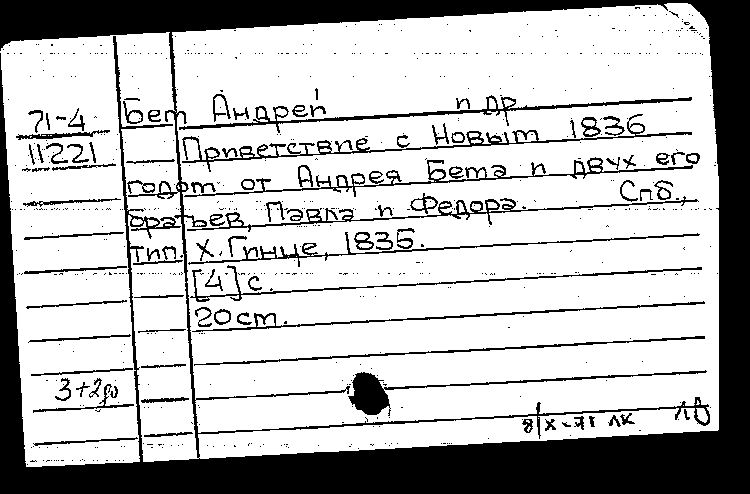 71-4 Бет Андрей и др.
11221 Приветствие с Новым 1836
годом от Андрея Бета и двух его
братьев, Павла и Федора. Спб.,
тип. Х. Гинце, 1835.
[4] с.
20 cm.
8/X-71 ЛК